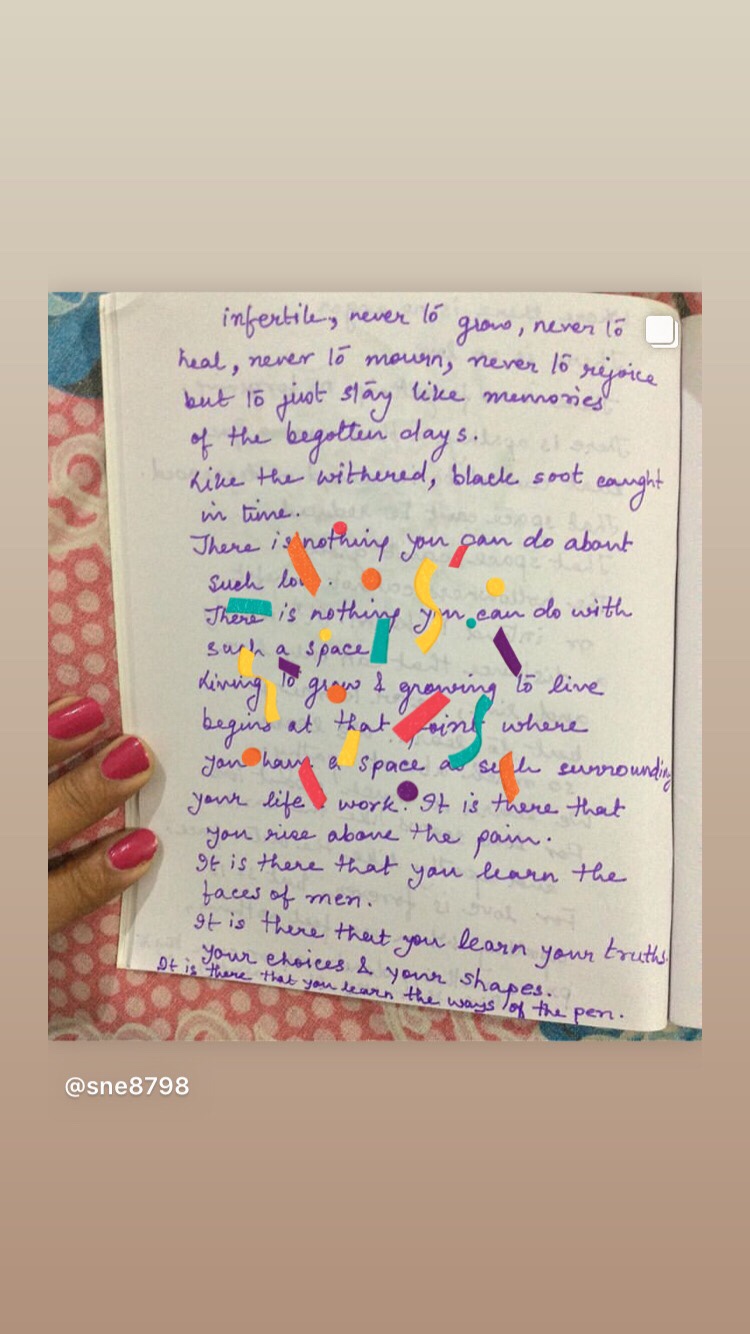 infertile, never to grow, never to
heal, never to mourn, never to rejoice
but to just stay like memories
of the begotten days.
Like the withered, black soot caught
in time.
There is nothing you can do about
such
There is nothing you can do with
such a space
Living to grow & growing to live
begins at that point where
you have a space as such surrounding
your life & work. It is there that
you rise above the pain.
It is there that you learn the
faces of men.
It is there that you learn your truths,
your choices & your shapes.
It is there that you learn the ways of the pen.
@sne8798